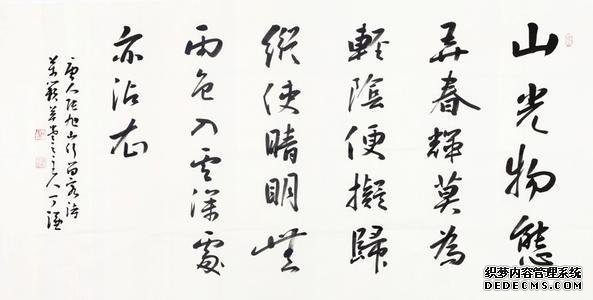 山光物態
弄春輝莫為
輕陰便擬歸
縱使晴明無
雨色入雲深處
亦沾衣
唐人張旭山行留客詩
草堂主人丁謙
织梦内容管理系统
DEDECMS.COM